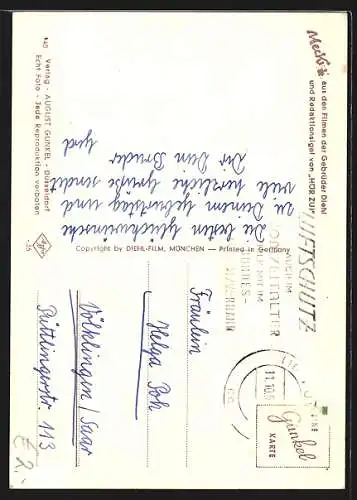 Mecki
aus den Filmen der Gebrüder Diehl
und Redaktionsigel von „HÖR ZU!"
Die besten Glückwünsche
zu Deinem Geburtstag und
viele herzliche Grüße sendet
Dir Dein Bruder
Gerd
140 Verlag - AUGUST GUNKEL - Düsseldorf
Echt Foto - Jede Reproduktion verboten
Copyright by DIEHL-FILM, MÜNCHEN — Printed in Germany
LUFTSCHUTZ
IM
BUNDES-
Gunkel
KARTE
Fräulein
Helga Poh
Völklingen/Saar
Püttlingerstr. 113
2,-